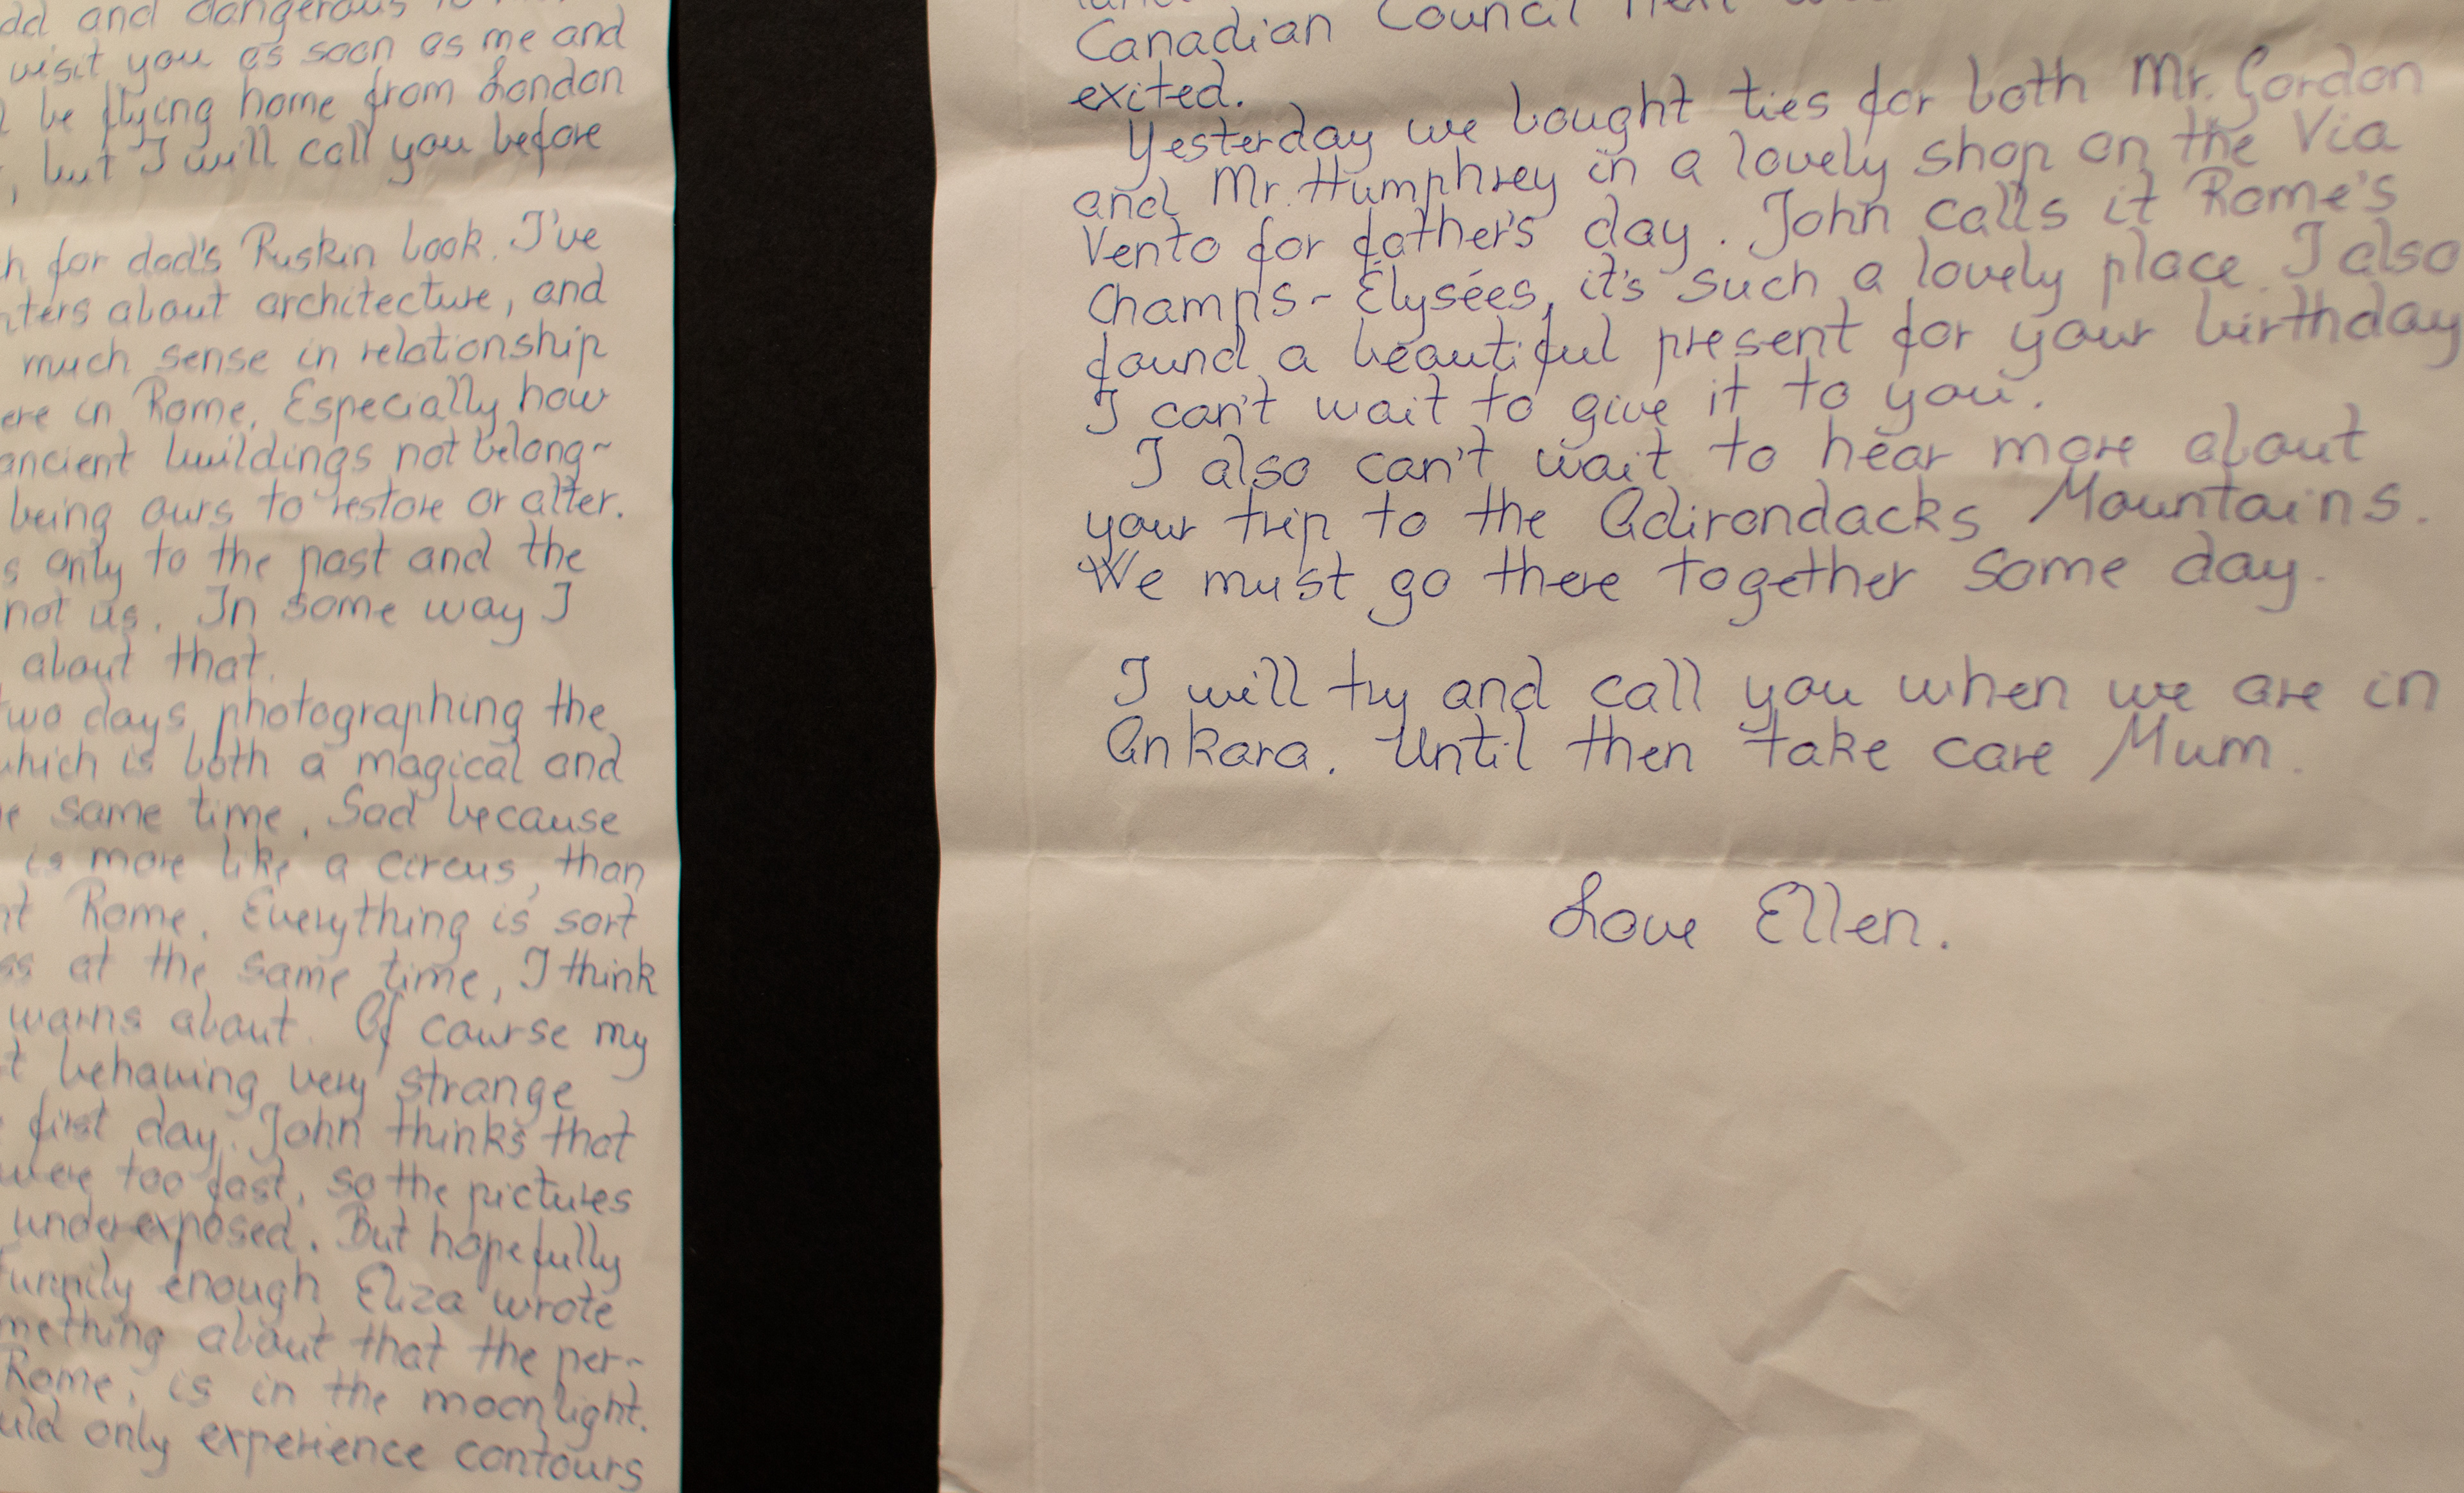 and dangerous to
visit you as soon as me and
be flying home from London
, but I will call you before
for dad's Ruskin book. I've
about architecture, and
much sense in relationship
in Rome. Especially how
ancient buildings not belong-
being ours to restore or alter.
only to the past and the
not us. In some way I
about that.
two days photographing the
which is both a magical and
same time. Sad because
is more like a circus, than
Rome. Everything is sort
at the same time, I think
warns about. Of course my
behaving very strange
first day. John thinks that
were too fast, so the pictures
underexposed. But hopefully
Funnily enough Eliza wrote
about that the per-
Rome, is in the moonlight.
only experience contours
Canadian Council next
exited.
Yesterday we bought ties for both Mr. Gordon
and Mr. Humphrey in a lovely shop on the Via
Vento for father's day. John calls it Rome's
Champs-Élysées, it's such a lovely place. I also
found a beautiful present for your birthday
I can't wait to give it to you.
I also can't wait to hear more about
your trip to the Adirondacks Mountains.
We must go there together some day.
I will try and call you when we are in
Ankara. Until then take care Mum.
Love Ellen.